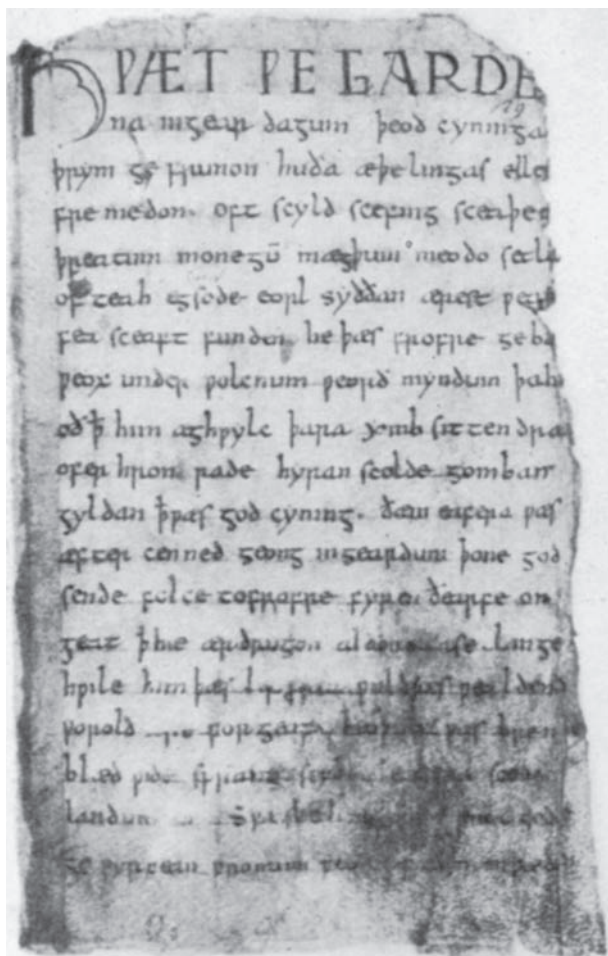 HǷÆT ǷE GARDE
na ingear dagum þeod cyninga
þrym ge frunon huða æþelingas elle
fre medon. oft scyld scefing sceaþe
þreatum monegū mægþum meodo setla
of teah egsode eorl syððan ærest ƿear
fea sceaft funden he þæs frofre geba
ƿeox under ƿolcnum ƿeorð myndum þah
oð ꝥ him æghƿylc þara ymb sittendra
ofer hron rade hyran scolde gomban
gyldan ꝥ ƿæs god cyning. ðæm eafera ƿæs
æfter cenned geong ingeardum þone god
sende folce tofrofre fyren ðearfe on
geat ꝥ hie ær drugon lange
hƿile him þæs ƿuldres ƿealdend
ƿorold forgeaf ƿæs breme
blæd ƿide sprang
landum
ge ƿyrcean fromum